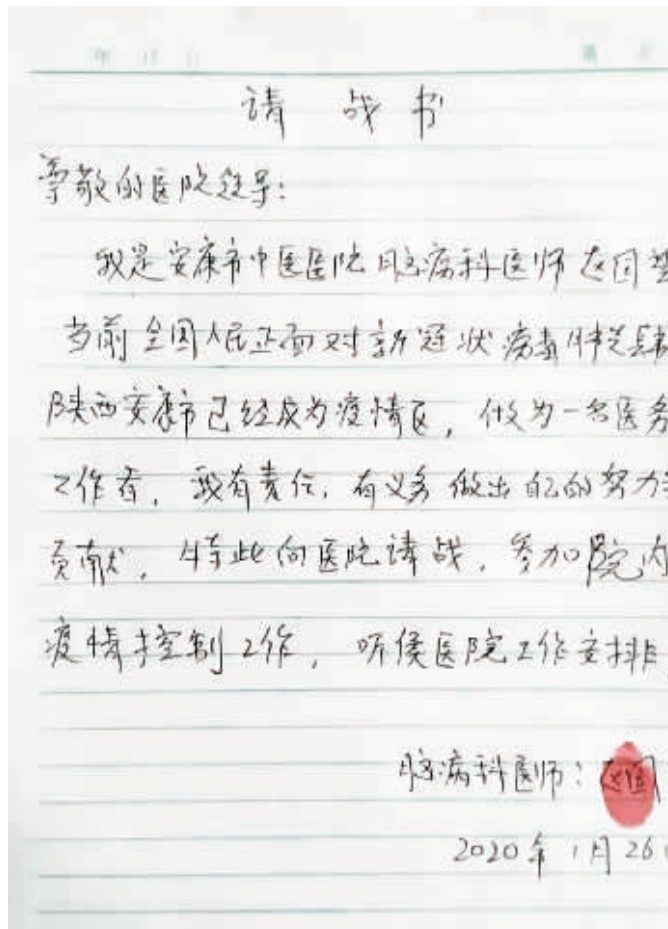 请战书
尊敬的医院领导：
我是安康市中医医院脑病科医师赵国
当前全国人民正面对新冠状病毒肺炎
陕西安康市已经成为疫情区，做为一名医务
工作者，我有责任，有义务做出自己的努力
贡献，特此向医院请战，参加院内
疫情控制工作，听侯医院工作安排
脑病科医师：赵国
2020年1月26